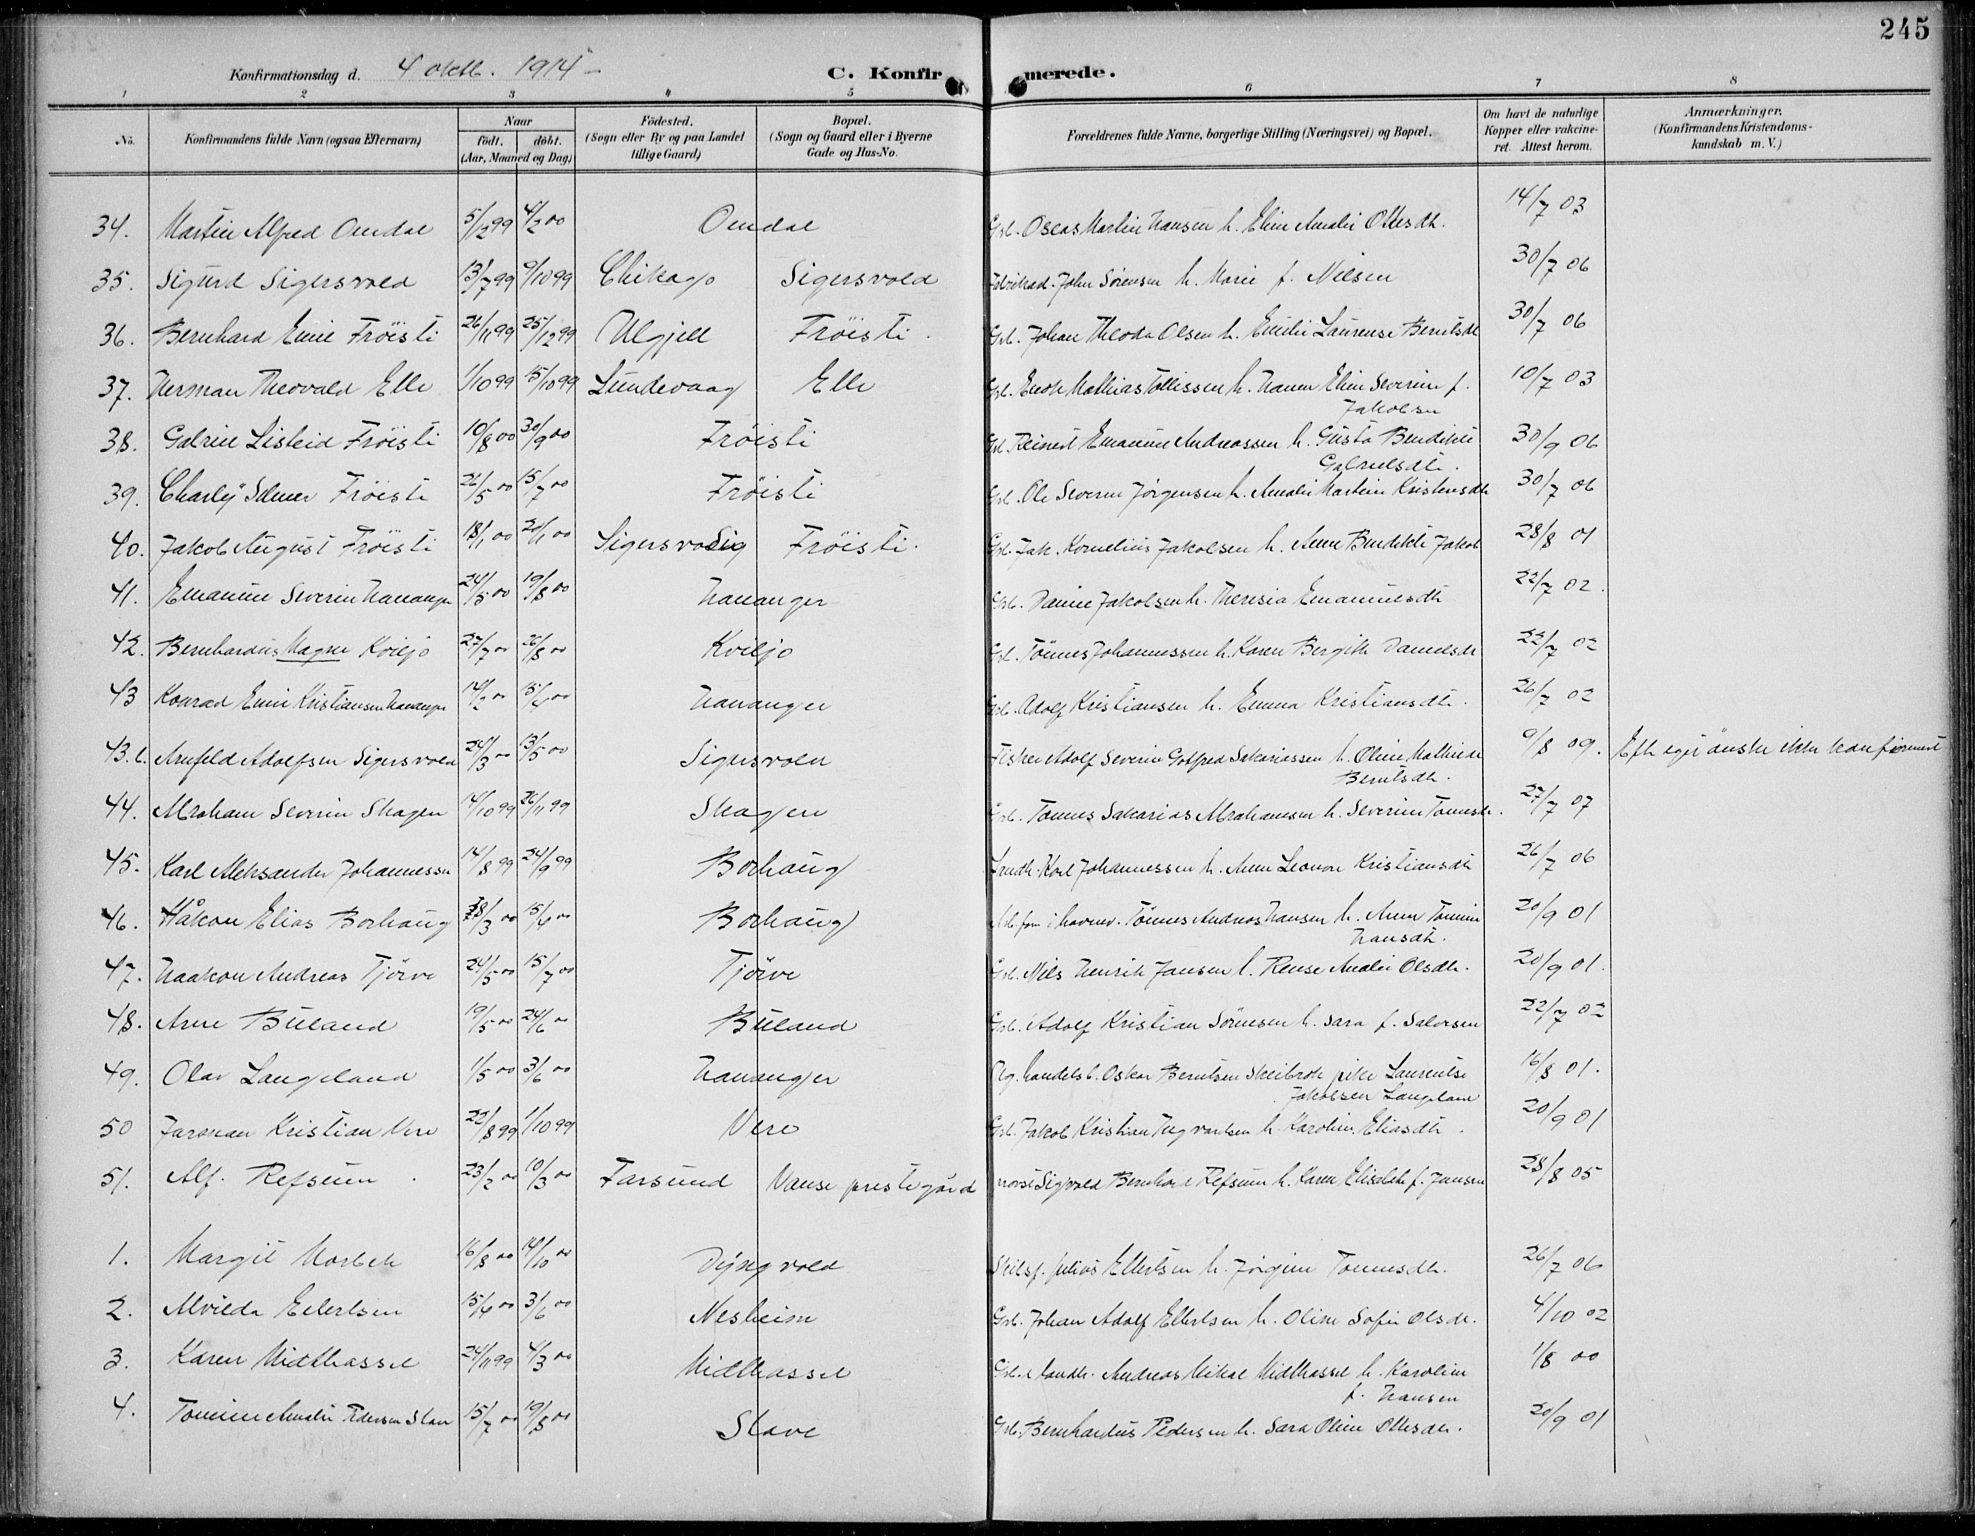 245
Konfirmationsdag d. 4 oktb. 1914 –
C. Konfirmerede.
1 2 3 4 5 6 7 8
No. Konfirmandens fulde Navn (ogsaa Efternavn) Naar födt. döbt. (Aar, Maaned og Dag) Födested. (Sogn eller By og paa Landet tillige Gaard) Bopæl. (Sogn og Gaard eller i Byerne Gade og Hus-No. Forældrenes fulde Navne, borgerlige Stilling (Næringsvei) og Bopæl. Om havt de naturlige Kopper eller vakcineret. Attest herom. Anmærkninger. (Konfirmandens Kristendomskundskab m. V.)
34. Martin Alfred Omdal 5/12 99 4/2 00 Omdal Grb. Oseas Martin Hansen h. Eline Amalie Ottesdt. 14/7 03
35. Sigurd Sigersvold 13/7 99 9/10 99 Chikago Sigersvold Fabrikarb. John Sörensen h. Marie f. Nilsen 30/7 06
36. Bernhard Emil Fröisti 26/11 99 25/12 99 Ulgjell Fröisti. Grb. Johan Theodor Olsen h. Emilie Laurense Berntsdt 30/7 06
37. Herman Theovald Elle 1/10 99 15/10 99 Lundevaag Elle Grb. Enok Mathias Tollissen h. Hanna Eline Severine f. Jakobsen 10/7 03
38. Gabriel Lisleid Fröisti 10/8 00 30/9 00 Fröisti Grb. Reinert Emanuel Andreassen h. Gusta Bendikte Gabrielsdt. 30/9 06
39. Charley Selmer Fröisti 26/5 00 15/7 00 Fröisti Grb. Ole Severin Jörgensen h. Amalie Martine Kristensdt 30/7 06
40. Jakob August Fröisti 18/1 00 20/1 00 Sigersvold Fröisti. Grb. Jak. Kornelius Jakobsen h. Anne Bendikte Jakob 28/8 01
41. Emanuel Severin Hananger 24/5 00 19/8 00 Hananger Grb. Daniel Jakobsen h. Theresia Emanuelsdt 22/7 02.
42. Bernhardus Magne Kviljo 27/7 00 26/8 00 Kviljo Grb. Tönnes Johannessen h. Karen Bergitte Danielsdt 22/7 02
43 Konrad Emil Kristiansen Hananger 14/2 00 15/4 00 Hananger Grb. Adolf Kristiansen h. Emma Kristiansdt. 26/7 02
43.b. Arnfeld Adolfsen Sigersvold 24/3 00 13/5 00 Sigersvold Fisker Adolf Severin Gotfred Sakariassen h. Oline Mathilde Berntsdt. 9/8 09. Efter eget önske ikke konfirmert
44. Abraham Severin Skagen 14/10 99 26/11 99 Skagen Grb. Tönnes Sakarias Abrahamsen h. Severine Tönnesdt. 27/7 07
45. Karl Aleksander Johannessen 14/8 99 24/9 99 Borhaug Landh. Karl Johannessen h. Anne Leonore Kristiansdt 26/7 06
46. Håkon Elias Borhaug 28/3 00 15/4 00 Borhaug Arb.form. i havnev. Tönnes Andreas Hansen h. Anne Tomine Hansdt. 20/9 01
47. Haakon Andreas Tjörve 24/5 00 15/7 00 Tjörve Grb. Nils Henrik Jansen h. Rense Amalie Olsdt. 20/9 01.
48. Arne Buland 19/5 00 24/6 00 Buland Grb. Adolf Kristian Sörensen h. Sara f. Salvesen 22/7 02
49. Olav Langeland 1/5 00 3/6 00 Hananger Ug. handelsb. Oskar Berntsen Skeibrok pike Laurentse Jakobsen Langeland 16/8 01.
50 Farman Kristian Vere 22/8 99 1/10 99 Vere Grb. Jakob Kristian Ingvartsen h. Karoline Eliasdt. 20/9 01
51. Alf. Refsum. 23/2 00 10/3 00 Farsund Vanse prestegård Provst Sigvald Bernhard Refsum h. Karen Elisabeth f. Jansen 28/8 05
1. Margit Marbek 16/8 00 14/10 00 Dyngvold Skibsf. Julius Ellertsen h. Jörgine Tönnesdt. 26/7 06
2. Alvilda Eilertsen 15/4 00 3/6 00 Nesheim Grb. Johan Adolf Ellertsen h. Oline Sofie Olsdt. 4/10 02
3. Karen Midthassel 24/11 99 4/3 00 Midthassel Grb. & landh. Andreas Mikal Midthassel h. Karoline f. Hansen 1/8 00
4. Tomine Amalie Pedersen Stave 15/7 00 19/8 00 Stave Grb. Bernhardus Pedersen h. Sara Oline Ottesdt. 20/9 01